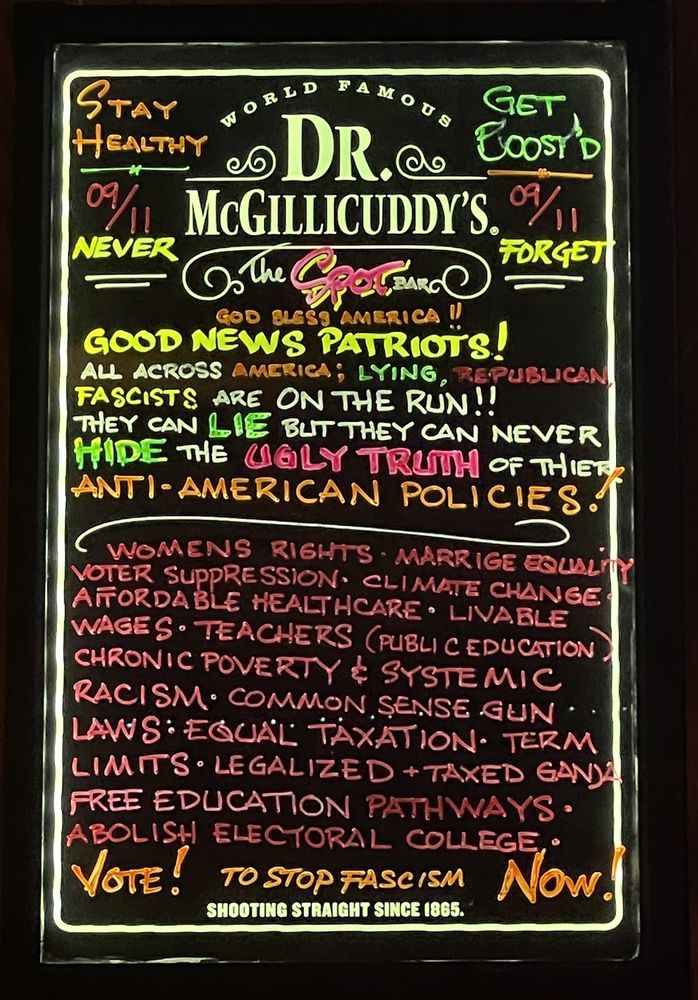 STAY
HEALTHY
WORLD FAMOUS
DR.
McGILLICUDDY'S®
GET
BOOST'D
09/11
NEVER
09/11
FORGET
The SPOT BAR
GOD BLESS AMERICA!!
GOOD NEWS PATRIOTS!
ALL ACROSS AMERICA; LYING, REPUBLICAN,
FASCISTS ARE ON THE RUN!!
THEY CAN LIE BUT THEY CAN NEVER
HIDE THE UGLY TRUTH OF THIER
ANTI-AMERICAN POLICIES!
WOMENS RIGHTS · MARRIGE EQUALITY
VOTER SUPPRESSION · CLIMATE CHANGE ·
AFFORDABLE HEALTHCARE · LIVABLE
WAGES · TEACHERS (PUBLIC EDUCATION)
CHRONIC POVERTY & SYSTEMIC
RACISM · COMMON SENSE GUN
LAWS · EQUAL TAXATION · TERM
LIMITS · LEGALIZED + TAXED GANJA
FREE EDUCATION PATHWAYS ·
ABOLISH ELECTORAL COLLEGE ·
VOTE! TO STOP FASCISM NOW!
SHOOTING STRAIGHT SINCE 1865.